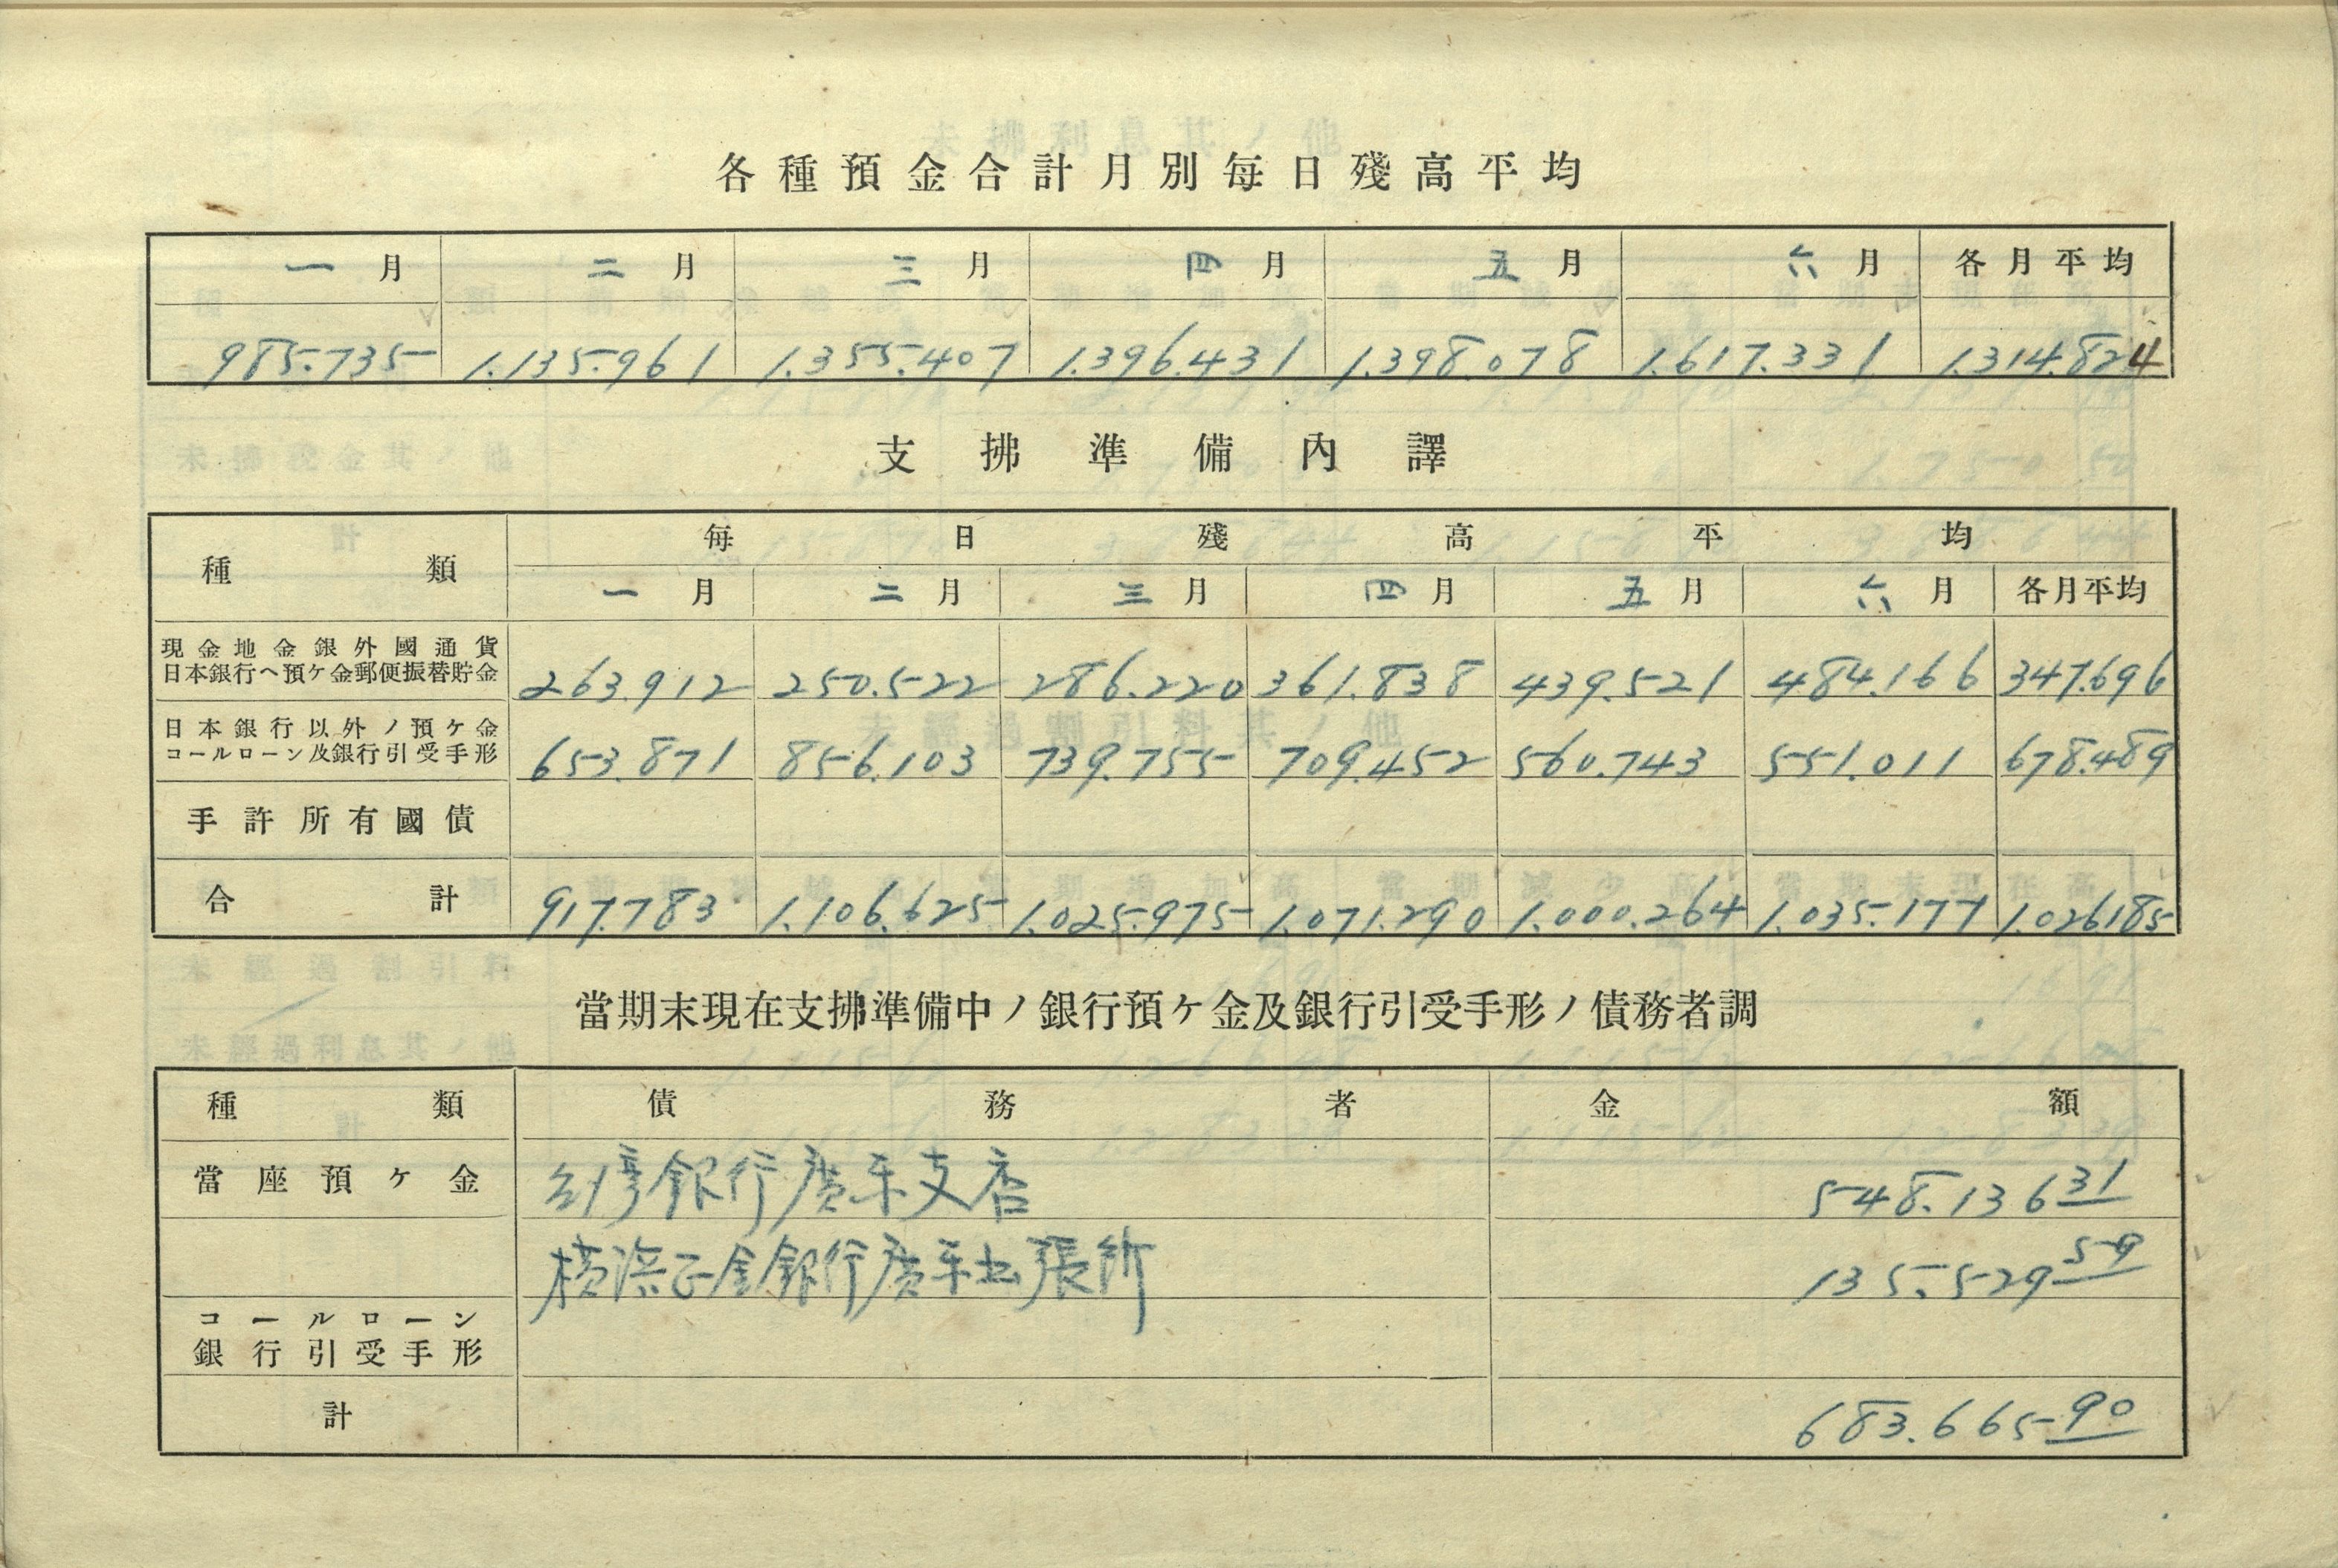 各種預金合計月別每日殘高平均
一月 二月 三月 四月 五月 六月 各月平均
985.735 1.135.961 1.355.407 1.396.431 1.398.078 1.617.331 1.314.824
支拂準備內譯
種類 每日殘高平均
一月 二月 三月 四月 五月 六月 各月平均
現金地金銀外國通貨
日本銀行ヘ預ケ金郵便振替貯金 263.912 250.522 286.220 361.838 439.521 484.166 347.696
日本銀行以外ノ預ケ金
コールローン及銀行引受手形 653.871 856.103 739.755 709.452 560.743 551.011 678.489
手許所有國債
合計 917.783 1.106.625 1.025.975 1.071.290 1.000.264 1.035.177 1.026185
當期末現在支拂準備中ノ銀行預ケ金及銀行引受手形ノ債務者調
種類 債務者 金額
當座預ケ金 銀行廣東支店 548.136 31
橫浜正金銀行廣東出張所 135.529 59
コールローン
銀行引受手形
計 683.665 90